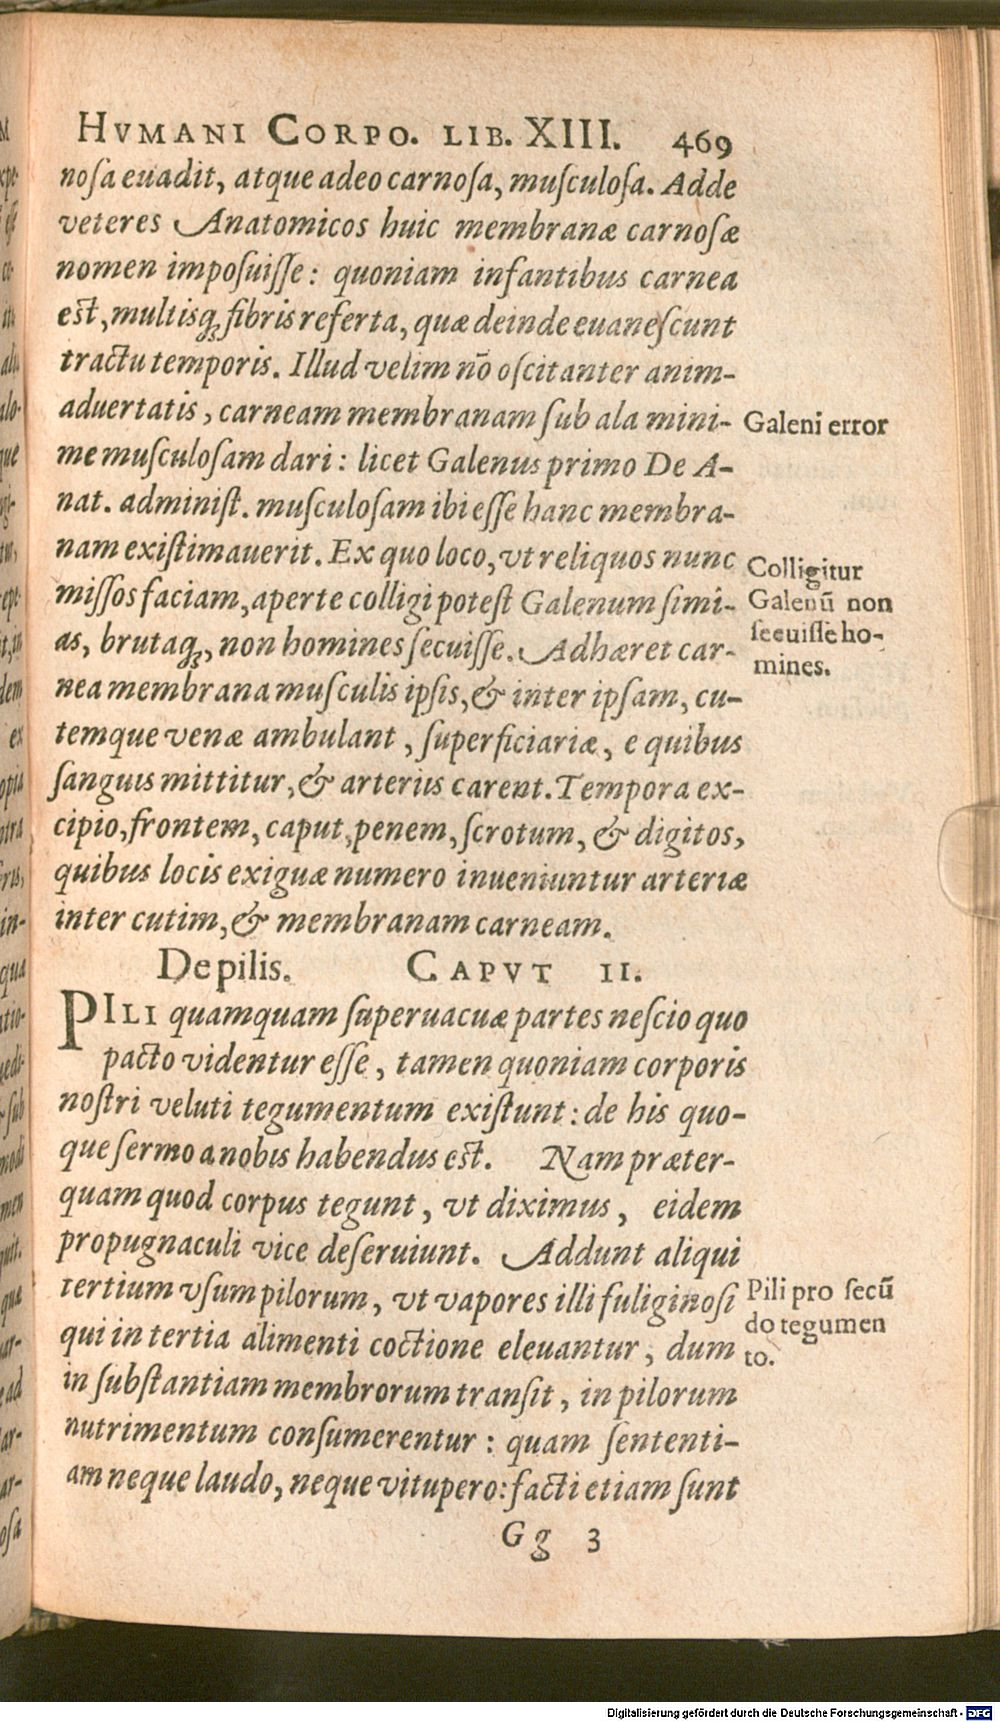 HVMANI CORPO. LIB. XIII. 469
nosa euadit, atque adeo carnosa, musculosa. Adde
veteres Anatomicos huic membranæ carnosæ
nomen imposuisse: quoniam infantibus carnea
est, multisq; fibris referta, quæ deinde euanescunt
tractu temporis. Illud velim nō oscitanter anim-
aduertatis, carneam membranam sub ala mini-
me musculosam dari: licet Galenus primo De A-
nat. administ. musculosam ibi esse hanc membra-
nam existimauerit. Ex quo loco, vt reliquos nunc
missos faciam, aperte colligi potest Galenum simi-
as, brutaq;, non homines secuisse. Adhæret car-
nea membrana musculis ipsis, & inter ipsam, cu-
temque venæ ambulant, superficiariæ, e quibus
sanguis mittitur, & arteriis carent. Tempora ex-
cipio, frontem, caput, penem, scrotum, & digitos,
quibus locis exiguæ numero inueniuntur arteriæ
inter cutim, & membranam carneam.
De pilis. CAPVT II.
PILI quamquam superuacuæ partes nescio quo
pacto videntur esse, tamen quoniam corporis
nostri veluti tegumentum existunt: de his quo-
que sermo a nobis habendus est. Nam præter-
quam quod corpus tegunt, vt diximus, eidem
propugnaculi vice deseruiunt. Addunt aliqui
tertium vsum pilorum, vt vapores illi fuliginosi
qui in tertia alimenti coctione eleuantur, dum
in substantiam membrorum transit, in pilorum
nutrimentum consumerentur: quam sententi-
am neque laudo, neque vitupero: facti etiam sunt
Gg 3
Galeni error
Colligitur
Galenū non
secuisse ho-
mines.
Pili pro secū
do tegumen
to.
Digitalisierung gefördert durch die Deutsche Forschungsgemeinschaft - DFG